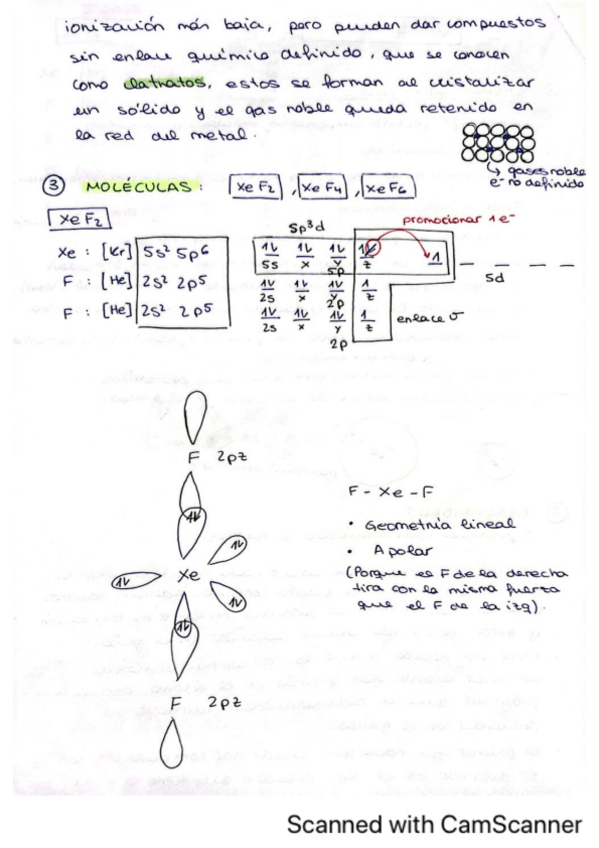 ionización más baja, pero pueden dar compuestos
sin enlace químico definido, que se conocen
como clatratos, estos se forman al cristalizar
un sólido y el gas noble queda retenido en
la red del metal.
↳ gases noble
e- no definido
③ MOLÉCULAS: XeF2, XeF4, XeF6
XeF2
5p³d
promocionar 1e-
Xe: [Kr] 5s² 5p⁶
F: [He] 2s² 2p⁵
F: [He] 2s² 2p⁵
1↓ 1↓ 1↓ 1↓ 1
5s x y z
5p
5d
1↓ 1↓ 1↓ 1
2s x y z
2p
enlace σ
1↓ 1↓ 1↓ 1
2s x y z
2p
F 2pz
1↓
1↓
1↓ Xe
1↓
1↓
F 2pz
F - Xe - F
• Geometría lineal
• Apolar
(Porque el F de la derecha
tira con la misma fuerza
que el F de la izq).
Scanned with CamScanner